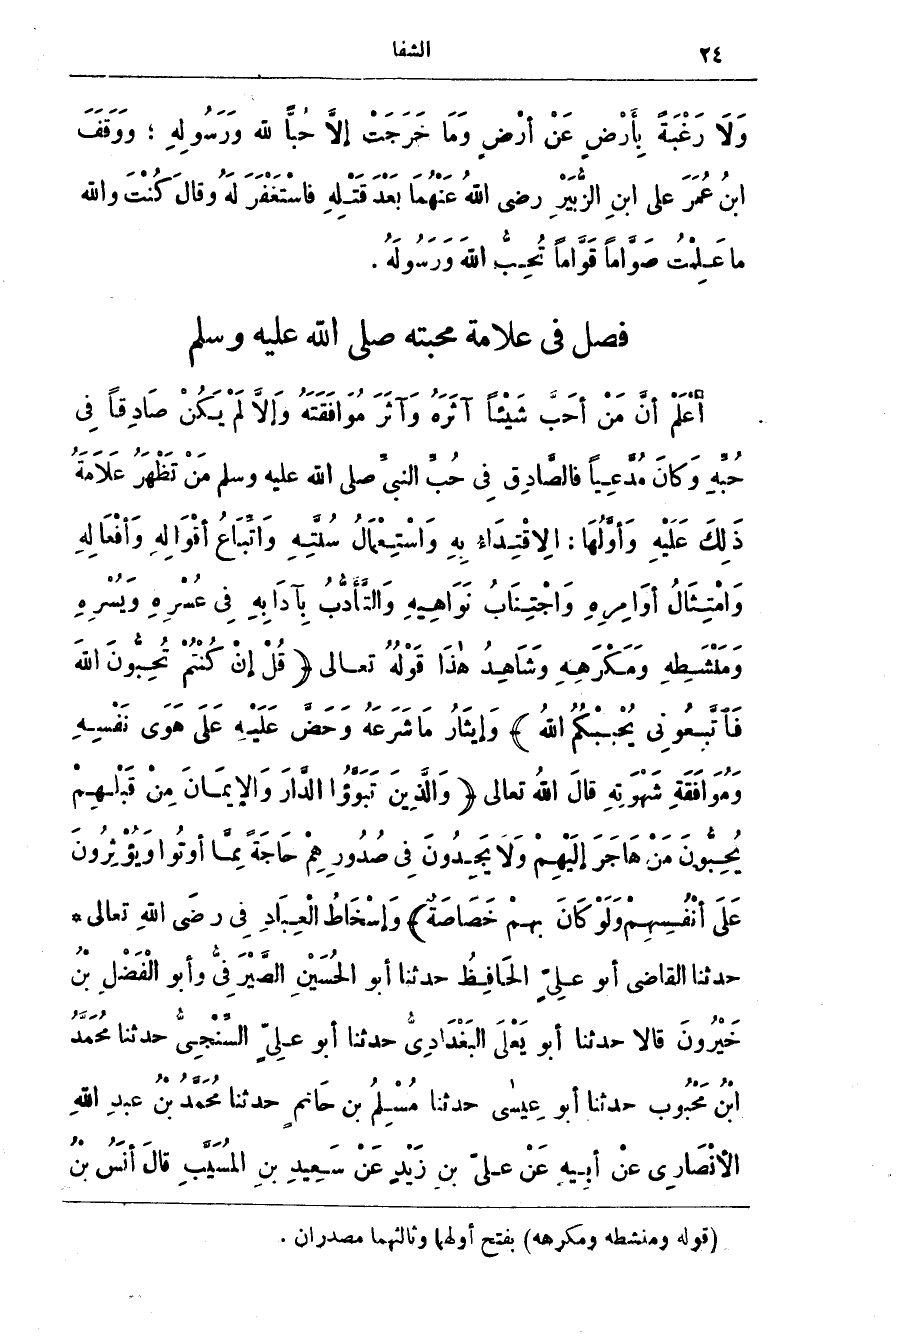 ٢٤ الشفا
وَلَا رَغْبَةً بِأَرْضٍ عَنْ أَرْضٍ وَمَا خَرَجَتْ إلَّا حُبًّا لله وَرَسُولِهِ ؛ وَوَقَفَ
ابنُ عُمَرَ على ابنِ الزُّبَيْرِ رضى اللهُ عَنْهُمَا بَعْدَ قَتْلِهِ فاسْتَغْفَرَ لَهُ وقالَ كُنْتَ والله
ما عَلِمْتُ صَوَّاماً قَوَّاماً تُحِبُّ اللهَ وَرَسُولَهُ .
فصل فى علامة محبته صلى الله عليه وسلم
أعْلَمْ أنَّ مَنْ أحَبَّ شَيْئاً آثَرَهُ وَآثَرَ مُوَافَقَتَهُ وَإلَّا لَمْ يَكُنْ صَادِقاً فِى
حُبِّهِ وَكانَ مُدَّعِياً فالصَّادِق فِى حُبِّ النبىِّ صلى الله عليه وسلم مَنْ تَظْهَرُ عَلَامَةُ
ذَلِكَ عَلَيْهِ وَأوَّلُهَا : الِاقْتِدَاءُ بِهِ وَاسْتِعْمَالُ سُنَّتِهِ وَاتِّبَاعُ أقْوَالِهِ وَأفْعَالِهِ
وَامْتِثَالُ أوَامِرِهِ وَاجْتِنَابُ نَوَاهِيهِ وَالتَّأَدُّبُ بِآدَابِهِ فِى عُسْرِهِ وَيُسْرِهِ
وَمَنْشَطِهِ وَمَكْرَهِهِ وَشَاهِدُ هٰذَا قَوْلُهُ تعالى ﴿ قُلْ إنْ كُنْتُمْ تُحِبُّونَ اللهَ
فَاتَّبِعُونِى يُحْبِبْكُمُ اللهُ ﴾ وَإيثَارُ مَا شَرَعَهُ وَحَضَّ عَلَيْهِ عَلَى هَوَى نَفْسِهِ
وَمُوَافَقَةِ شَهْوَتِهِ قالَ اللهُ تعالى ﴿ وَالَّذِينَ تَبَوَّؤُا الدَّارَ وَالإيمَانَ مِنْ قَبْلِهِمْ
يُحِبُّونَ مَنْ هَاجَرَ إلَيْهِمْ وَلَا يَجِدُونَ فِى صُدُورِهِمْ حَاجَةً مِمَّا أوتُوا وَيُؤْثِرُونَ
عَلَى أنْفُسِهِمْ وَلَوْ كَانَ بِهِمْ خَصَاصَةٌ﴾ وَإسْخَاطُ الْعِبَادِ فِى رضَى اللهِ تعالى *
حدثنا القاضى أبو عَلِىٍّ الحَافِظُ حدثنا أبو الحُسَيْنِ الصَّيْرَفِىُّ وأبو الْفَضْلِ بْنُ
خَيْرُونَ قالا حدثنا أبو يَعْلَى البَغْدَادِىُّ حدثنا أبو عَلِىٍّ السِّنْجِىُّ حدثنا مُحَمَّدُ
ابْنُ مَحْبُوب حدثنا أبو عِيسٰى حدثنا مُسْلِمُ بن حَاتِمٍ حدثنا مُحَمَّدُ بْنُ عبدِ اللهِ
الأَنْصَارِى عنْ أبِيهِ عَنْ عَلِىِّ بنِ زَيْدٍ عَنْ سَعِيدِ بنِ المُسَيَّبِ قالَ أنَسُ بْنُ
(قوله ومنشطه ومكرهه) بفتح أولهما وثالثهما مصدران .